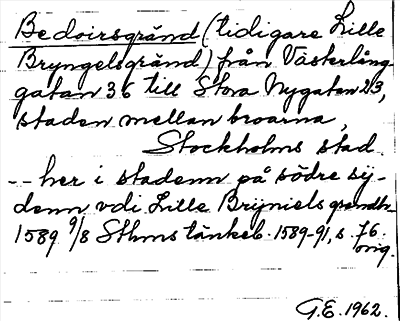 Bedoirsgränd (tidigare Lille
Bryngelsgränd) från Västerlång-
gatan 36 till Stora Nygatan 23,
staden mellan broarna,
Stockholms stad.
-- her i stadenn på södre sij-
denn vdi Lille Brynielsgrendh-
1589 9/8 Sthms tänkeb. 1589-91, s. 76.
orig.
G.E. 1962.